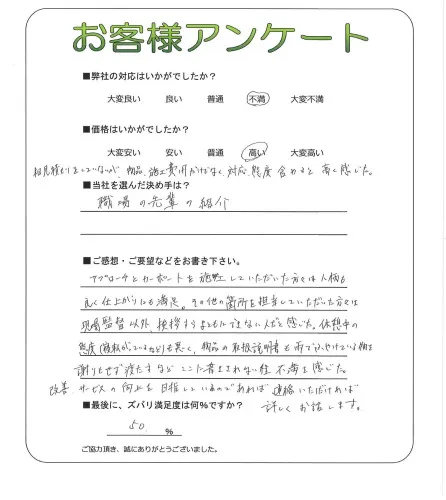 お客様アンケート
■弊社の対応はいかがでしたか?
大変良い 良い 普通 不満 大変不満
■価格はいかがでしたか?
大変安い 安い 普通 高い 大変高い
相見積りをしていないが、物品、施工費用だけでなく、対応、態度含めると高く感じた。
■当社を選んだ決め手は?
職場の先輩の紹介
■ご感想・ご要望などをお書き下さい。
アプローチとカーポートを施工していただいた方々は人柄も
良く仕上がりにも満足。その他の箇所を担当していただいた方々は
現場監督以外、挨拶すらまともにできない人だと感じた。休憩中の
態度も悪く、物品の取扱説明書も雨でふやけている物を
謝りもせず渡たすなど ここに書ききれない程 不満を感じた。
改善、サービスの向上を目指しているのであれば 連絡いただければ
詳しくお話します。
■最後に、ズバリ満足度は何%ですか?
50 %
ご協力頂き、誠にありがとうございました。